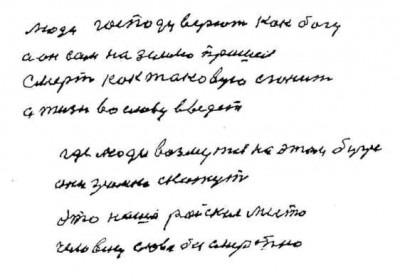 люди господу верют как богу
а он сам на землю пришел
смерт как таковую сгонит
а жизн во славу введет
где люди возмутся на этом бугре
они громко скажут
это наша райская место
человеку слова бессмертно